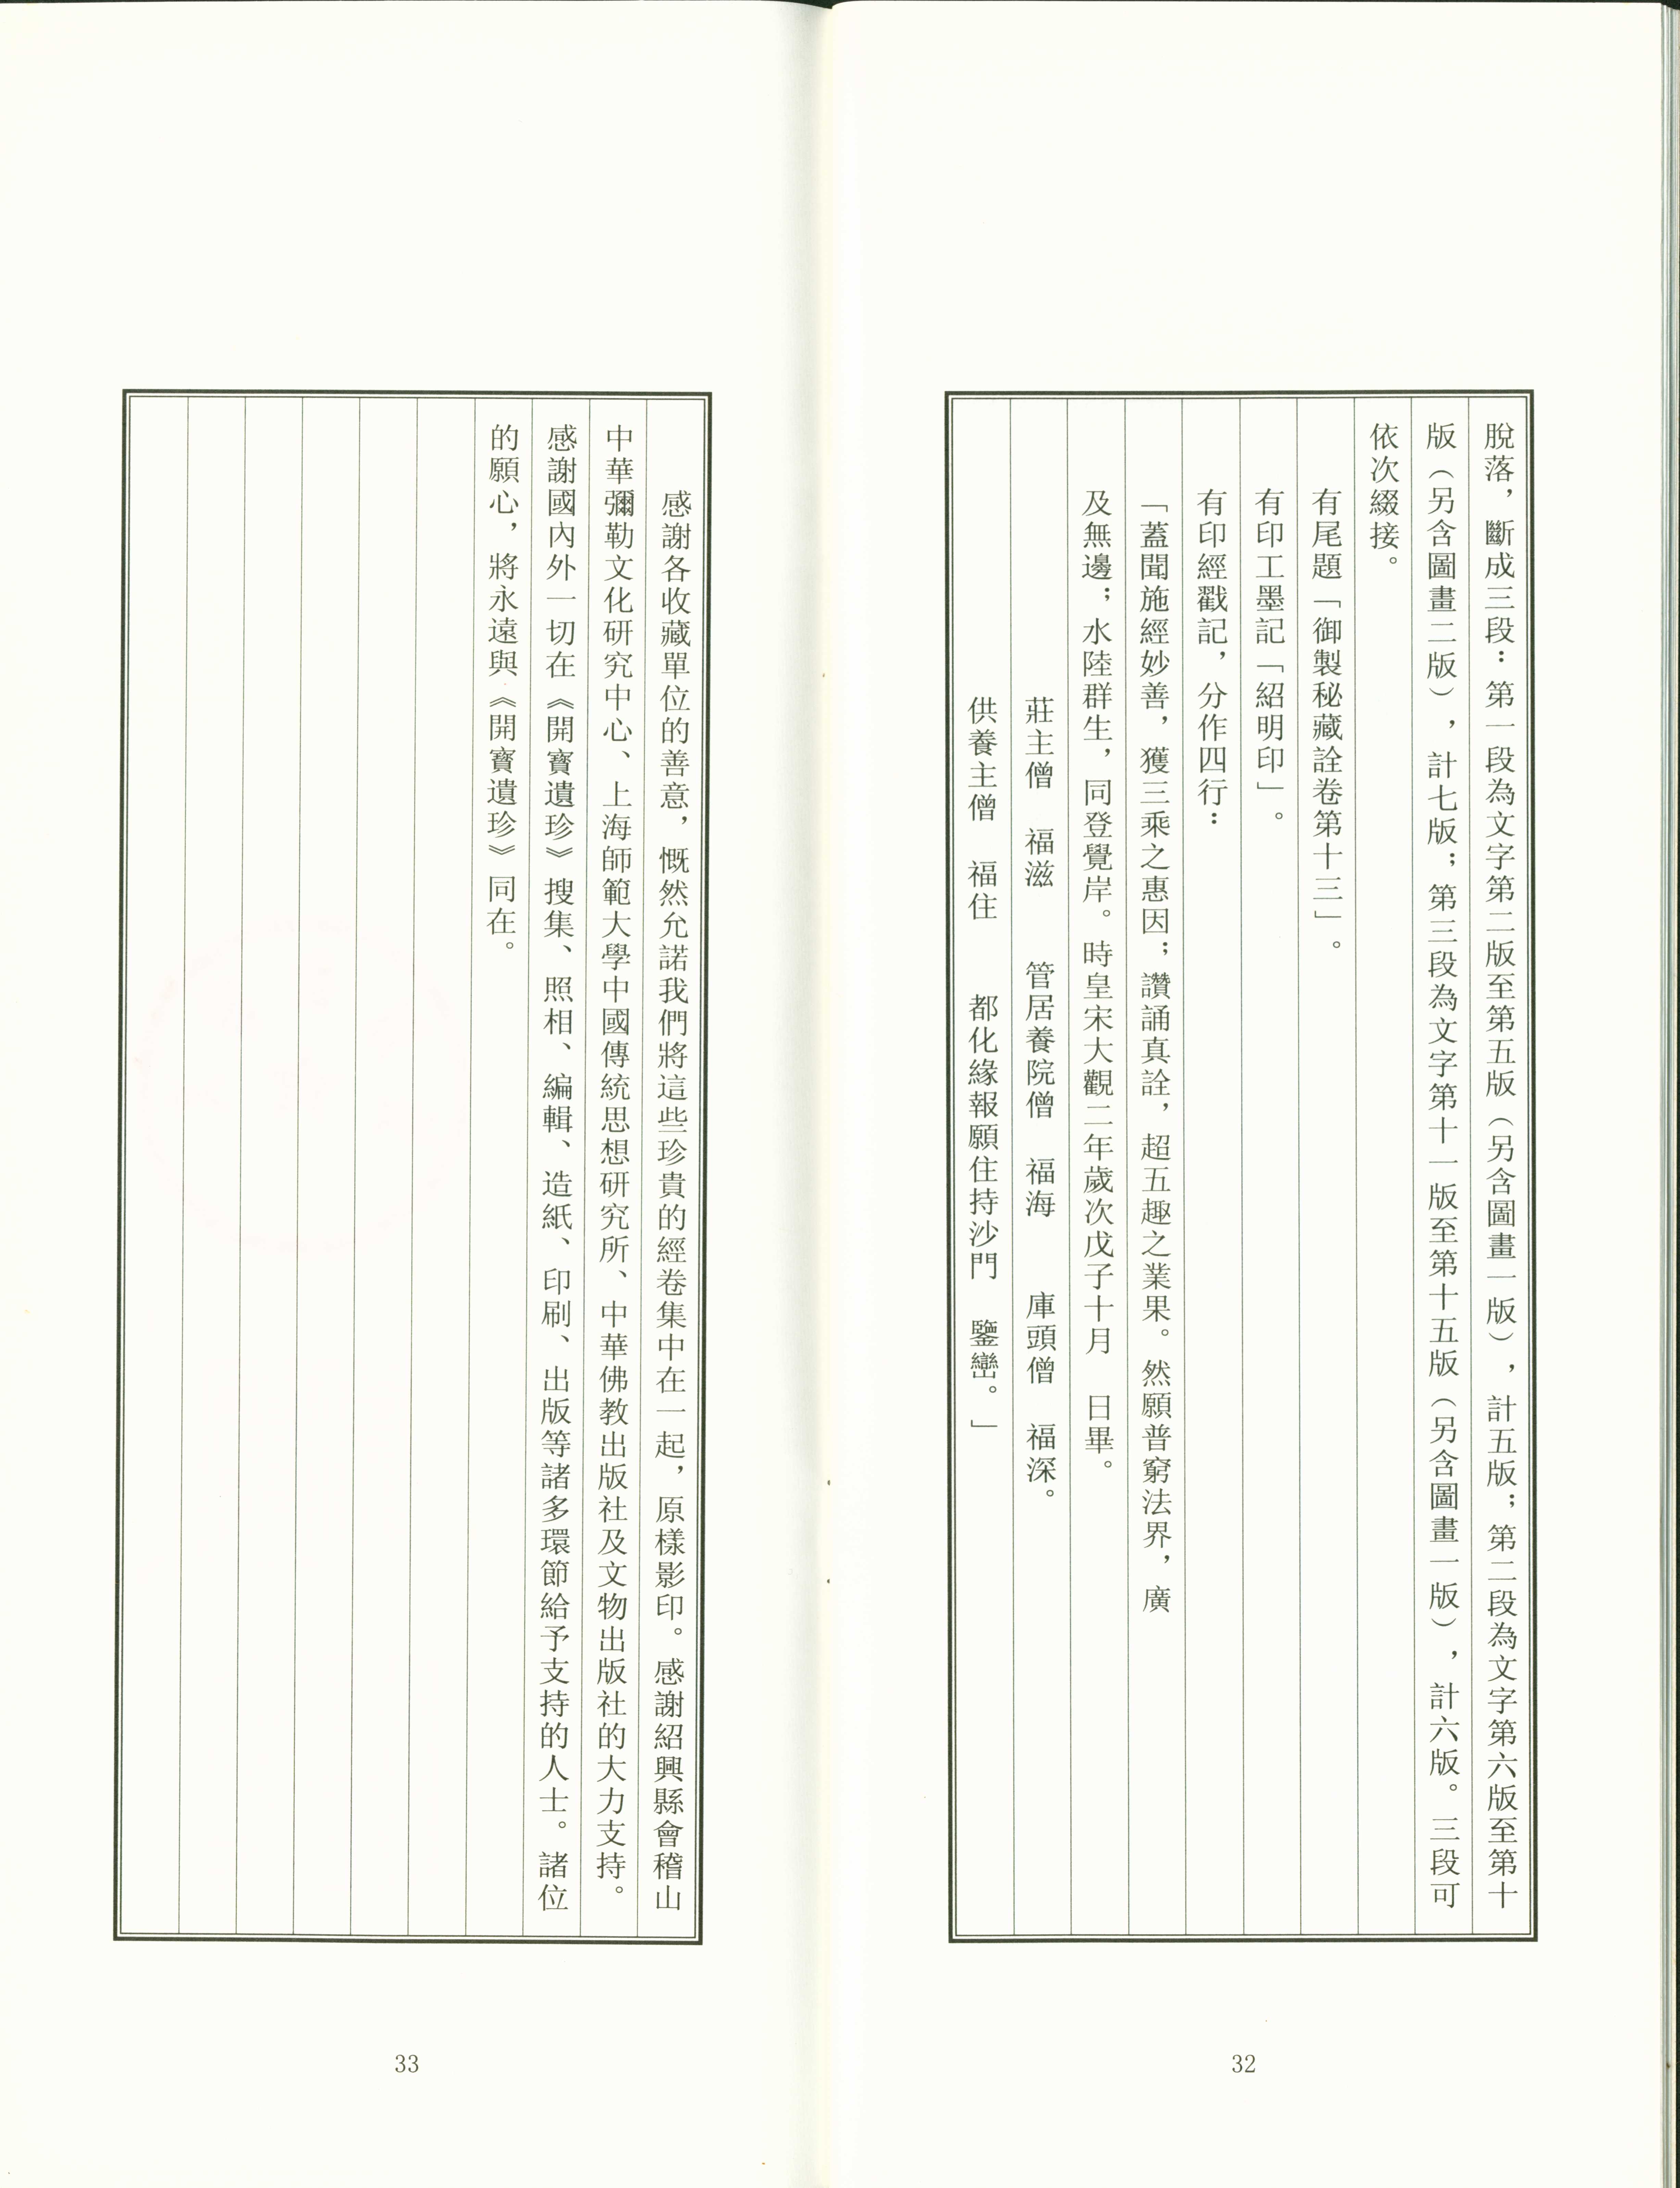 脫落，斷成三段：第一段為文字第二版至第五版（另含圖畫一版），計五版；第二段為文字第六版至第十
版（另含圖畫二版），計七版；第三段為文字第十一版至第十五版（另含圖畫一版），計六版。三段可
依次綴接。
有尾題「御製秘藏詮卷第十三」。
有印工墨記「紹明印」。
有印經戳記，分作四行：
「蓋聞施經妙善，獲三乘之惠因；讚誦真詮，超五趣之業果。然願普窮法界，廣
及無邊；水陸群生，同登覺岸。時皇宋大觀二年歲次戊子十月　日畢。
莊主僧　福滋　管居養院僧　福海　庫頭僧　福深。
供養主僧　福住　都化緣報願住持沙門　鑒巒。」
32
感謝各收藏單位的善意，慨然允諾我們將這些珍貴的經卷集中在一起，原樣影印。感謝紹興縣會稽山
中華彌勒文化研究中心、上海師範大學中國傳統思想研究所、中華佛教出版社及文物出版社的大力支持。
感謝國內外一切在《開寶遺珍》搜集、照相、編輯、造紙、印刷、出版等諸多環節給予支持的人士。諸位
的願心，將永遠與《開寶遺珍》同在。
33